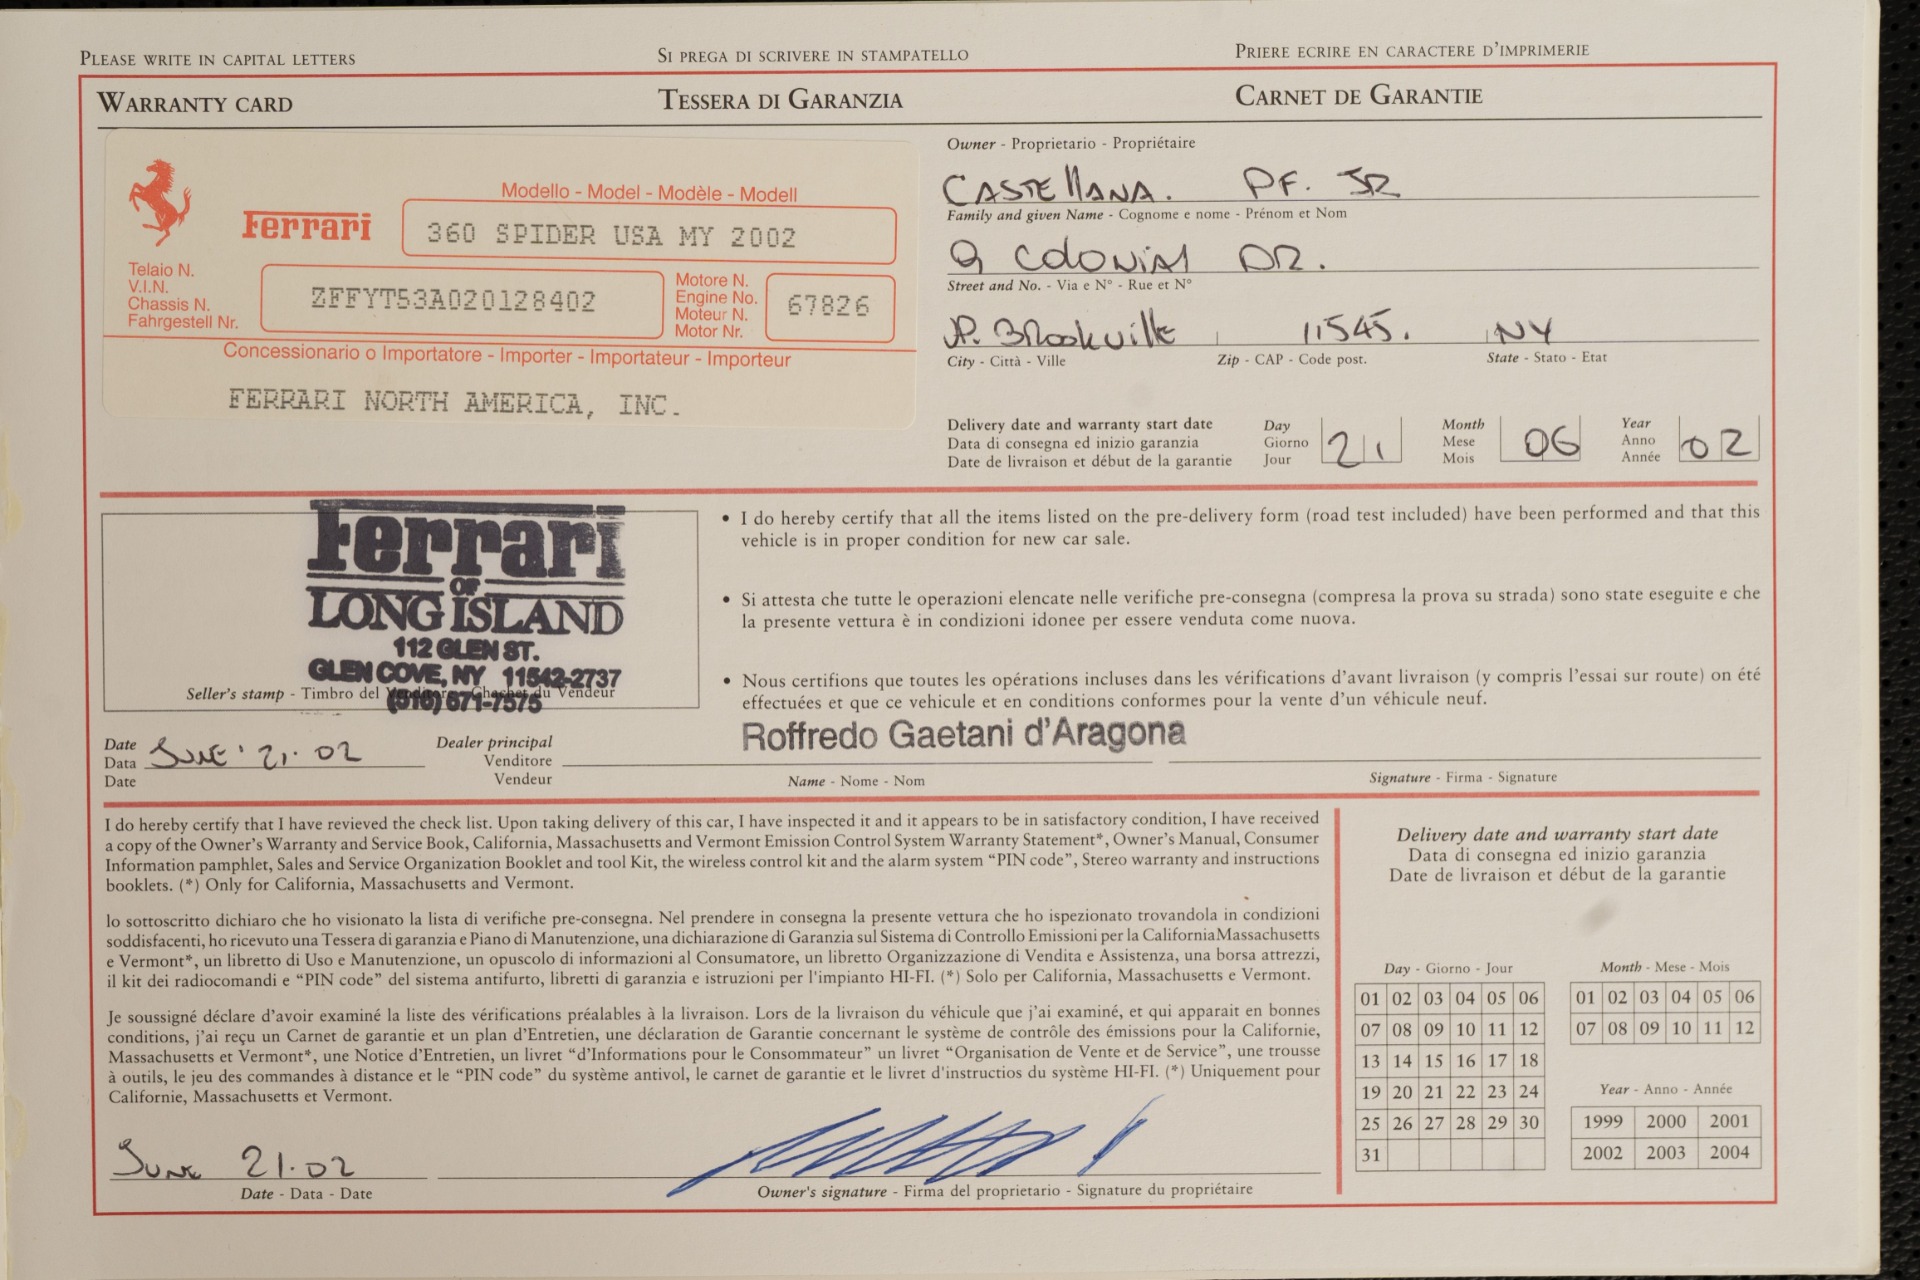 PLEASE WRITE IN CAPITAL LETTERS
SI PREGA DI SCRIVERE IN STAMPATELLO
PRIERE ECRIRE EN CARACTERE D'IMPRIMERIE
WARRANTY CARD
TESSERA DI GARANZIA
CARNET DE GARANTIE
Modello - Model - Modèle - Modell
Ferrari
360 SPIDER USA MY 2002
Telaio N.
V.I.N.
Chassis N.
Fahrgestell Nr.
ZFFYT53A020128402
Motore N.
Engine No.
Moteur N.
Motor Nr.
67826
Concessionario o Importatore - Importer - Importateur - Importeur
FERRARI NORTH AMERICA, INC.
Owner - Proprietario - Propriétaire
CASTEllANA. PF. JR
Family and given Name - Cognome e nome - Prénom et Nom
9 COlONiAl DR.
Street and No. - Via e N° - Rue et N°
BRookville 11545. NY
City - Città - Ville Zip - CAP - Code post. State - Stato - Etat
Delivery date and warranty start date
Data di consegna ed inizio garanzia
Date de livraison et début de la garantie
Day
Giorno
Jour
21
Month
Mese
Mois
06
Year
Anno
Année
02
Ferrari
OF
LONG ISLAND
112 GLEN ST.
GLEN COVE, NY 11542-2737
(516) 671-7575
Seller's stamp - Timbro del Venditore - Chachet du Vendeur
• I do hereby certify that all the items listed on the pre-delivery form (road test included) have been performed and that this
vehicle is in proper condition for new car sale.
• Si attesta che tutte le operazioni elencate nelle verifiche pre-consegna (compresa la prova su strada) sono state eseguite e che
la presente vettura è in condizioni idonee per essere venduta come nuova.
• Nous certifions que toutes les opérations incluses dans les vérifications d'avant livraison (y compris l'essai sur route) on été
effectuées et que ce vehicule et en conditions conformes pour la vente d'un véhicule neuf.
Date
Data
Date
JUNE ' 21. 02
Dealer principal
Venditore
Vendeur
Roffredo Gaetani d'Aragona
Name - Nome - Nom
Signature - Firma - Signature
I do hereby certify that I have revieved the check list. Upon taking delivery of this car, I have inspected it and it appears to be in satisfactory condition, I have received
a copy of the Owner's Warranty and Service Book, California, Massachusetts and Vermont Emission Control System Warranty Statement*, Owner's Manual, Consumer
Information pamphlet, Sales and Service Organization Booklet and tool Kit, the wireless control kit and the alarm system "PIN code", Stereo warranty and instructions
booklets. (*) Only for California, Massachusetts and Vermont.
Io sottoscritto dichiaro che ho visionato la lista di verifiche pre-consegna. Nel prendere in consegna la presente vettura che ho ispezionato trovandola in condizioni
soddisfacenti, ho ricevuto una Tessera di garanzia e Piano di Manutenzione, una dichiarazione di Garanzia sul Sistema di Controllo Emissioni per la California Massachusetts
e Vermont*, un libretto di Uso e Manutenzione, un opuscolo di informazioni al Consumatore, un libretto Organizzazione di Vendita e Assistenza, una borsa attrezzi,
il kit dei radiocomandi e "PIN code" del sistema antifurto, libretti di garanzia e istruzioni per l'impianto HI-FI. (*) Solo per California, Massachusetts e Vermont.
Je soussigné déclare d'avoir examiné la liste des vérifications préalables à la livraison. Lors de la livraison du véhicule que j'ai examiné, et qui apparait en bonnes
conditions, j'ai reçu un Carnet de garantie et un plan d'Entretien, une déclaration de Garantie concernant le système de contrôle des émissions pour la Californie,
Massachusetts et Vermont*, une Notice d'Entretien, un livret "d'Informations pour le Consommateur" un livret "Organisation de Vente et de Service", une trousse
à outils, le jeu des commandes à distance et le "PIN code" du système antivol, le carnet de garantie et le livret d'instructios du système HI-FI. (*) Uniquement pour
Californie, Massachusetts et Vermont.
JUNE 21.02
Date - Data - Date
Owner's signature - Firma del proprietario - Signature du propriétaire
Delivery date and warranty start date
Data di consegna ed inizio garanzia
Date de livraison et début de la garantie
Day - Giorno - Jour
01 02 03 04 05 06
07 08 09 10 11 12
13 14 15 16 17 18
19 20 21 22 23 24
25 26 27 28 29 30
31
Month - Mese - Mois
01 02 03 04 05 06
07 08 09 10 11 12
Year - Anno - Année
1999 2000 2001
2002 2003 2004